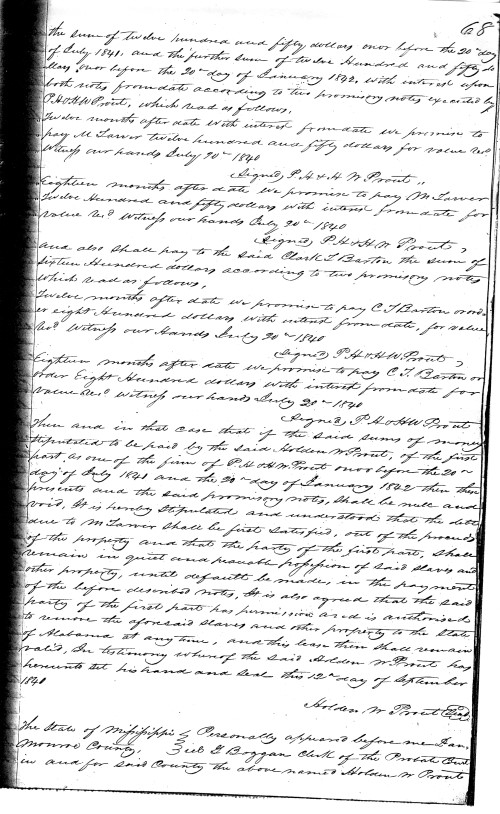 68
the sum of twelve hundred and fifty dollars on or before the 20th day
of July 1841, and the further sum of twelve Hundred and fifty do
llars on or before the 20th day of January 1842, with interest upon
both notes from date according to two promisory notes executed by
P.H. & H.W. Prout, which read as follows,
Twelve months after date with interest from date we promise to
pay M. Lawer twelve hundred and fifty dollars for value Recd
Witness our hands July 20th 1840
Signed, P. H. & H. W. Prout,,
Eighteen months after date we promise to pay M. Lawer
Twelve Hundred and fifty dollars with interest from date for
value Recd Witness our hands July 20th 1840
Signed P.H. & H. W. Prout,
and also shall pay to the said Clark T Barton the sum of
Sixteen Hundred dollars according to two promisory notes
which read as follows,
Twelve months after date we promise to pay C. T Barton or ord-
er eight Hundred dollars with interest from date, for value
Recd Witness our Hands July 20th 1840
Signed, P H. & H W. Prout,
Eighteen months after date we promise to pay C. T. Barton or
order Eight Hundred dollars with interest from date for
value Recd witness our hands July 20th 1840
Signed, P. H. & H W Prout
Then and in that case that if the said sums of money
Stipulated to be paid by the said Holden W Prout, of the first
part, as one of the firm of P. H & H W Prout on or before the 20th
day of July 1841 and the 20th day of January 1842 then these
presents and the said promisory notes, shall be null and
void, It is hereby Stipulated and understood that the debt
due to M Lawer shall be first satisfied, out of the proceeds
of the property and that the party of the first part, shall
remain in quiet and peacable possession of said slaves and
other property, until default be made, in the payment
of the before described notes, It is also agreed that the said
party of the first part has permission and is authorised
to remove the aforesaid slaves and other property to the State
of Alabama at any time, and this lease then shall remain
valid, In testimony whereof the said Holden W Prout has
hereunto set his hand and seal this 12th day of September
1840
Holden W Prout Seal
The State of Mississippi Personally appeared before me Dan-
Monroe County, iel E Boggan Clerk of the Probate Court
in and for said County the above named Holden W Prout